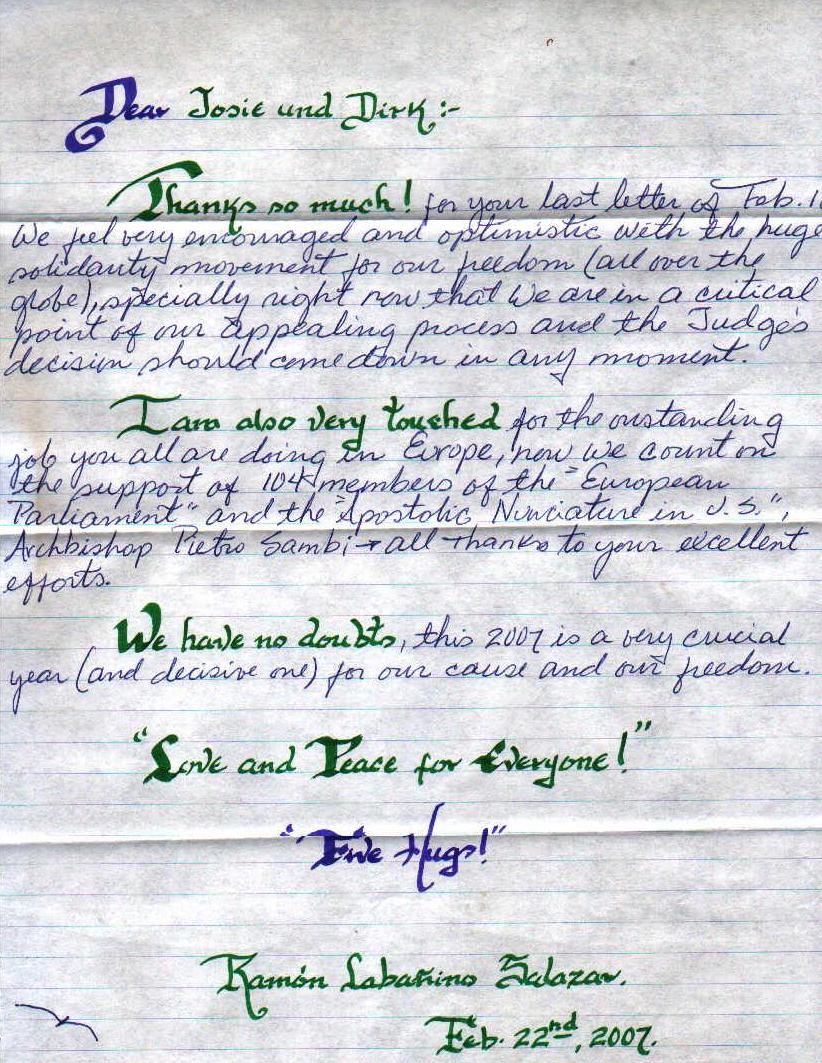 Dear Josie und Dirk :-
Thanks so much! for your last letter of Feb. 1
We feel very encouraged and optimistic with the huge
solidarity movement for our freedom (all over the
globe), specially right now that we are in a critical
point of our appealing process and the Judge's
decision should come down in any moment.
I am also very touched for the oustanding
job you all are doing in Europe, now we count on
the support of 104 members of the "European
Parliament" and the "Apostolic Nunciature in U.S.",
Archbishop Pietro Sambi → all thanks to your excellent
efforts.
We have no doubts, this 2007 is a very crucial
year (and decisive one) for our cause and our freedom.
"Love and Peace for Everyone!"
"Five Hugs!"
Ramón Labañino Salazar.
Feb. 22nd, 2007.